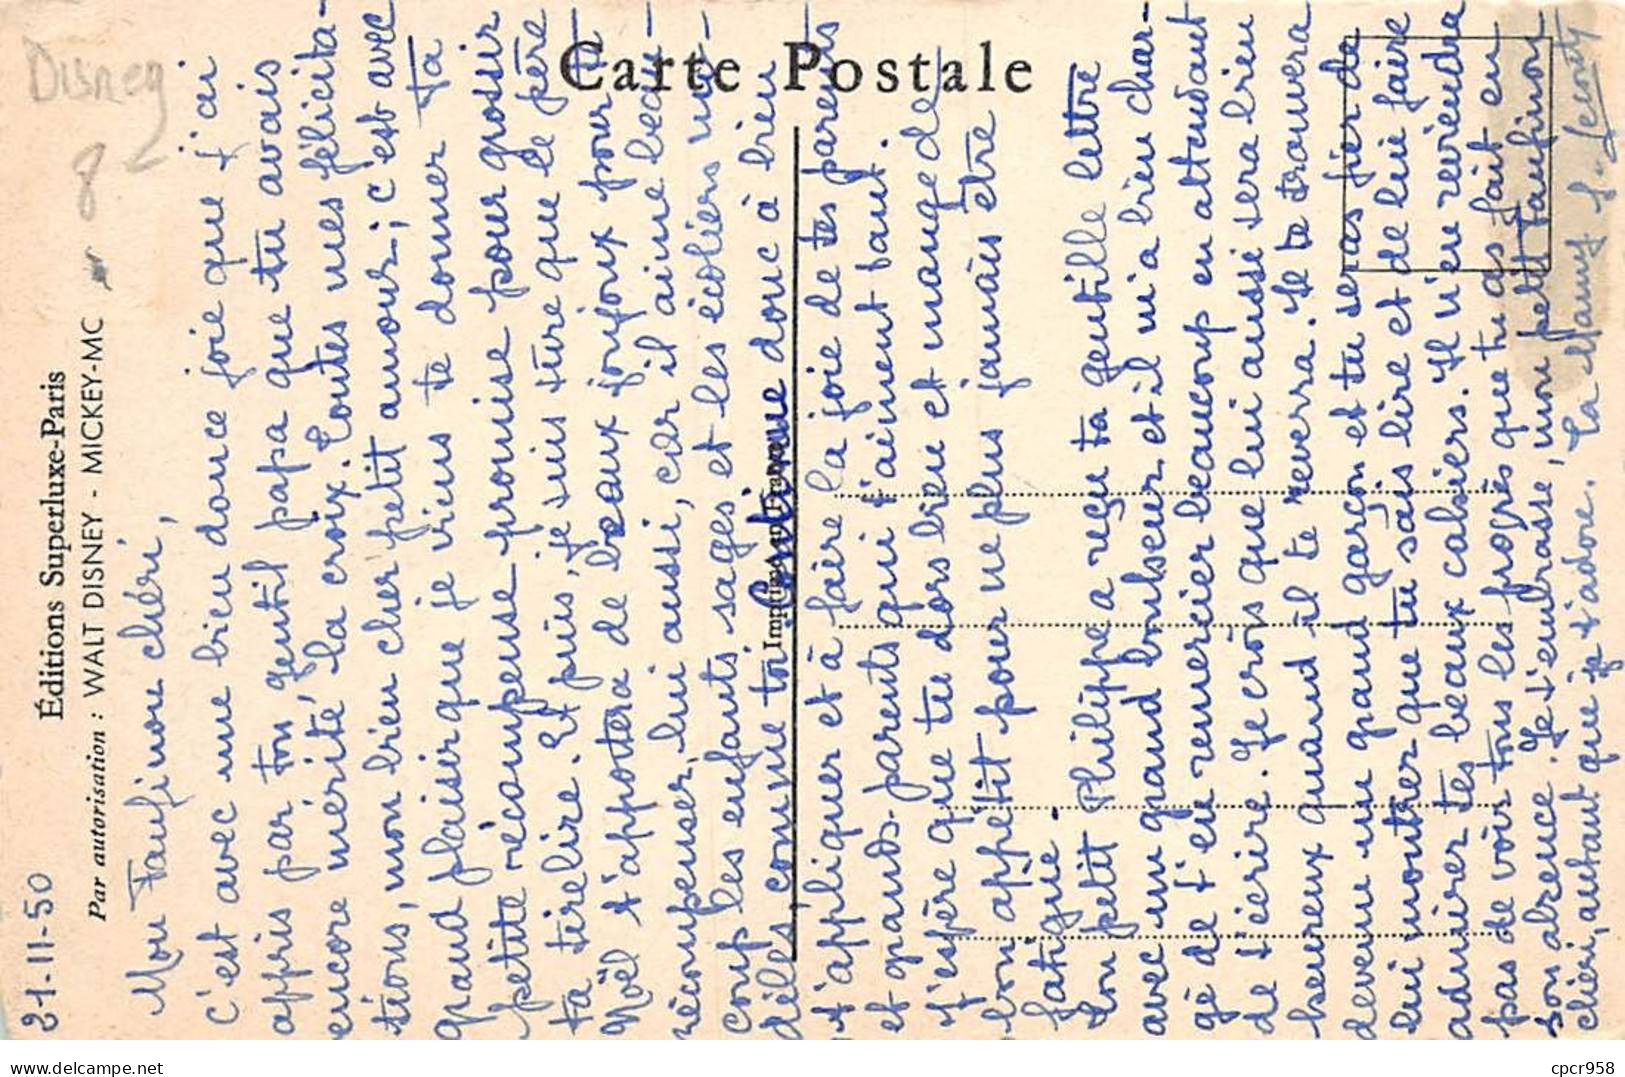 Disney
82
Carte Postale
Éditions Superluxe-Paris
Par autorisation : WALT DISNEY - MICKEY-MC
Imprimé en France
21-11-50
Mon Fanfinou chéri,
C'est avec une bien douce joie que j'ai
appris par ton gentil papa que tu avais
encore mérité la croix. Toutes mes félicita-
tions, mon bien cher petit amour ; c'est avec
grand plaisir que je viens te donner ta
petite récompense promise pour grossir
ta tirelire. Et puis, je suis sûre que le père
Noël t'apportera de beaux joujoux pour te
récompenser, lui aussi, car il aime beau-
coup les enfants sages et les écoliers mo-
dèles comme toi. Continue donc à bien
t'appliquer et à faire la joie de tes parents
et grands-parents qui t'aiment tant.
J'espère que tu dors bien et mange de
bon appétit pour ne plus jamais être
fatigué.
Ton petit Philippe a reçu ta gentille lettre
avec un grand bonheur et il m'a bien char-
gé de t'en remercier beaucoup en attendant
de t'écrire. Je crois que lui aussi sera bien
heureux quand il te reverra. Il te trouvera
devenu un grand garçon et tu seras fier de
lui montrer que tu sais lire et de lui faire
admirer tes beaux cahiers. Il n'en reviendra
pas de voir tous les progrès que tu as fait en
son absence. Je t'embrasse, mon petit Fanfinou
chéri, autant que je t'adore. Ta Mamy
cpcr958